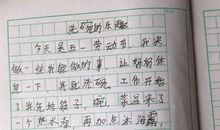 洗碗的乐趣
今天是五一劳动节,我决
做一些我能做的事,让妈妈休
息一下,我就洗碗,工作开始
了我先给筷子、碗、菜盆来了
一个热水澡,再加点沐浴露,